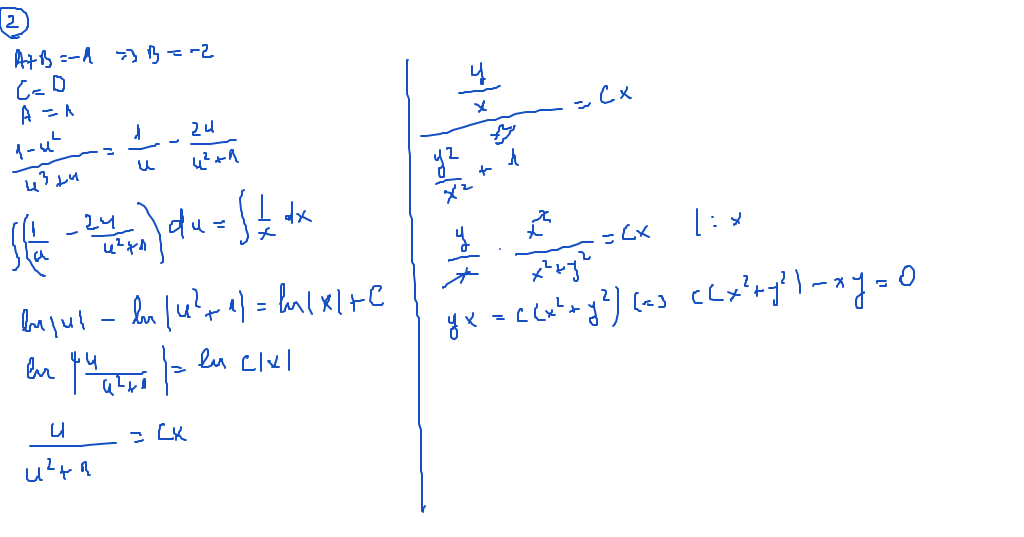 2
A+B=-1 => B=-2
C=0
A=1
(1-u²)/(u³+u) = 1/u - 2u/(u²+1)
∫(1/u - 2u/(u²+1)) du = ∫ 1/x dx
ln|u| - ln|u²+1| = ln|x| + C
ln |u/(u²+1)| = ln C|x|
u/(u²+1) = Cx
(y/x)/(y²/x² + 1) = Cx
y/x · x²/(x²+y²) = Cx |: x
yx = C(x²+y²) (=> C(x²+y²) - xy = 0